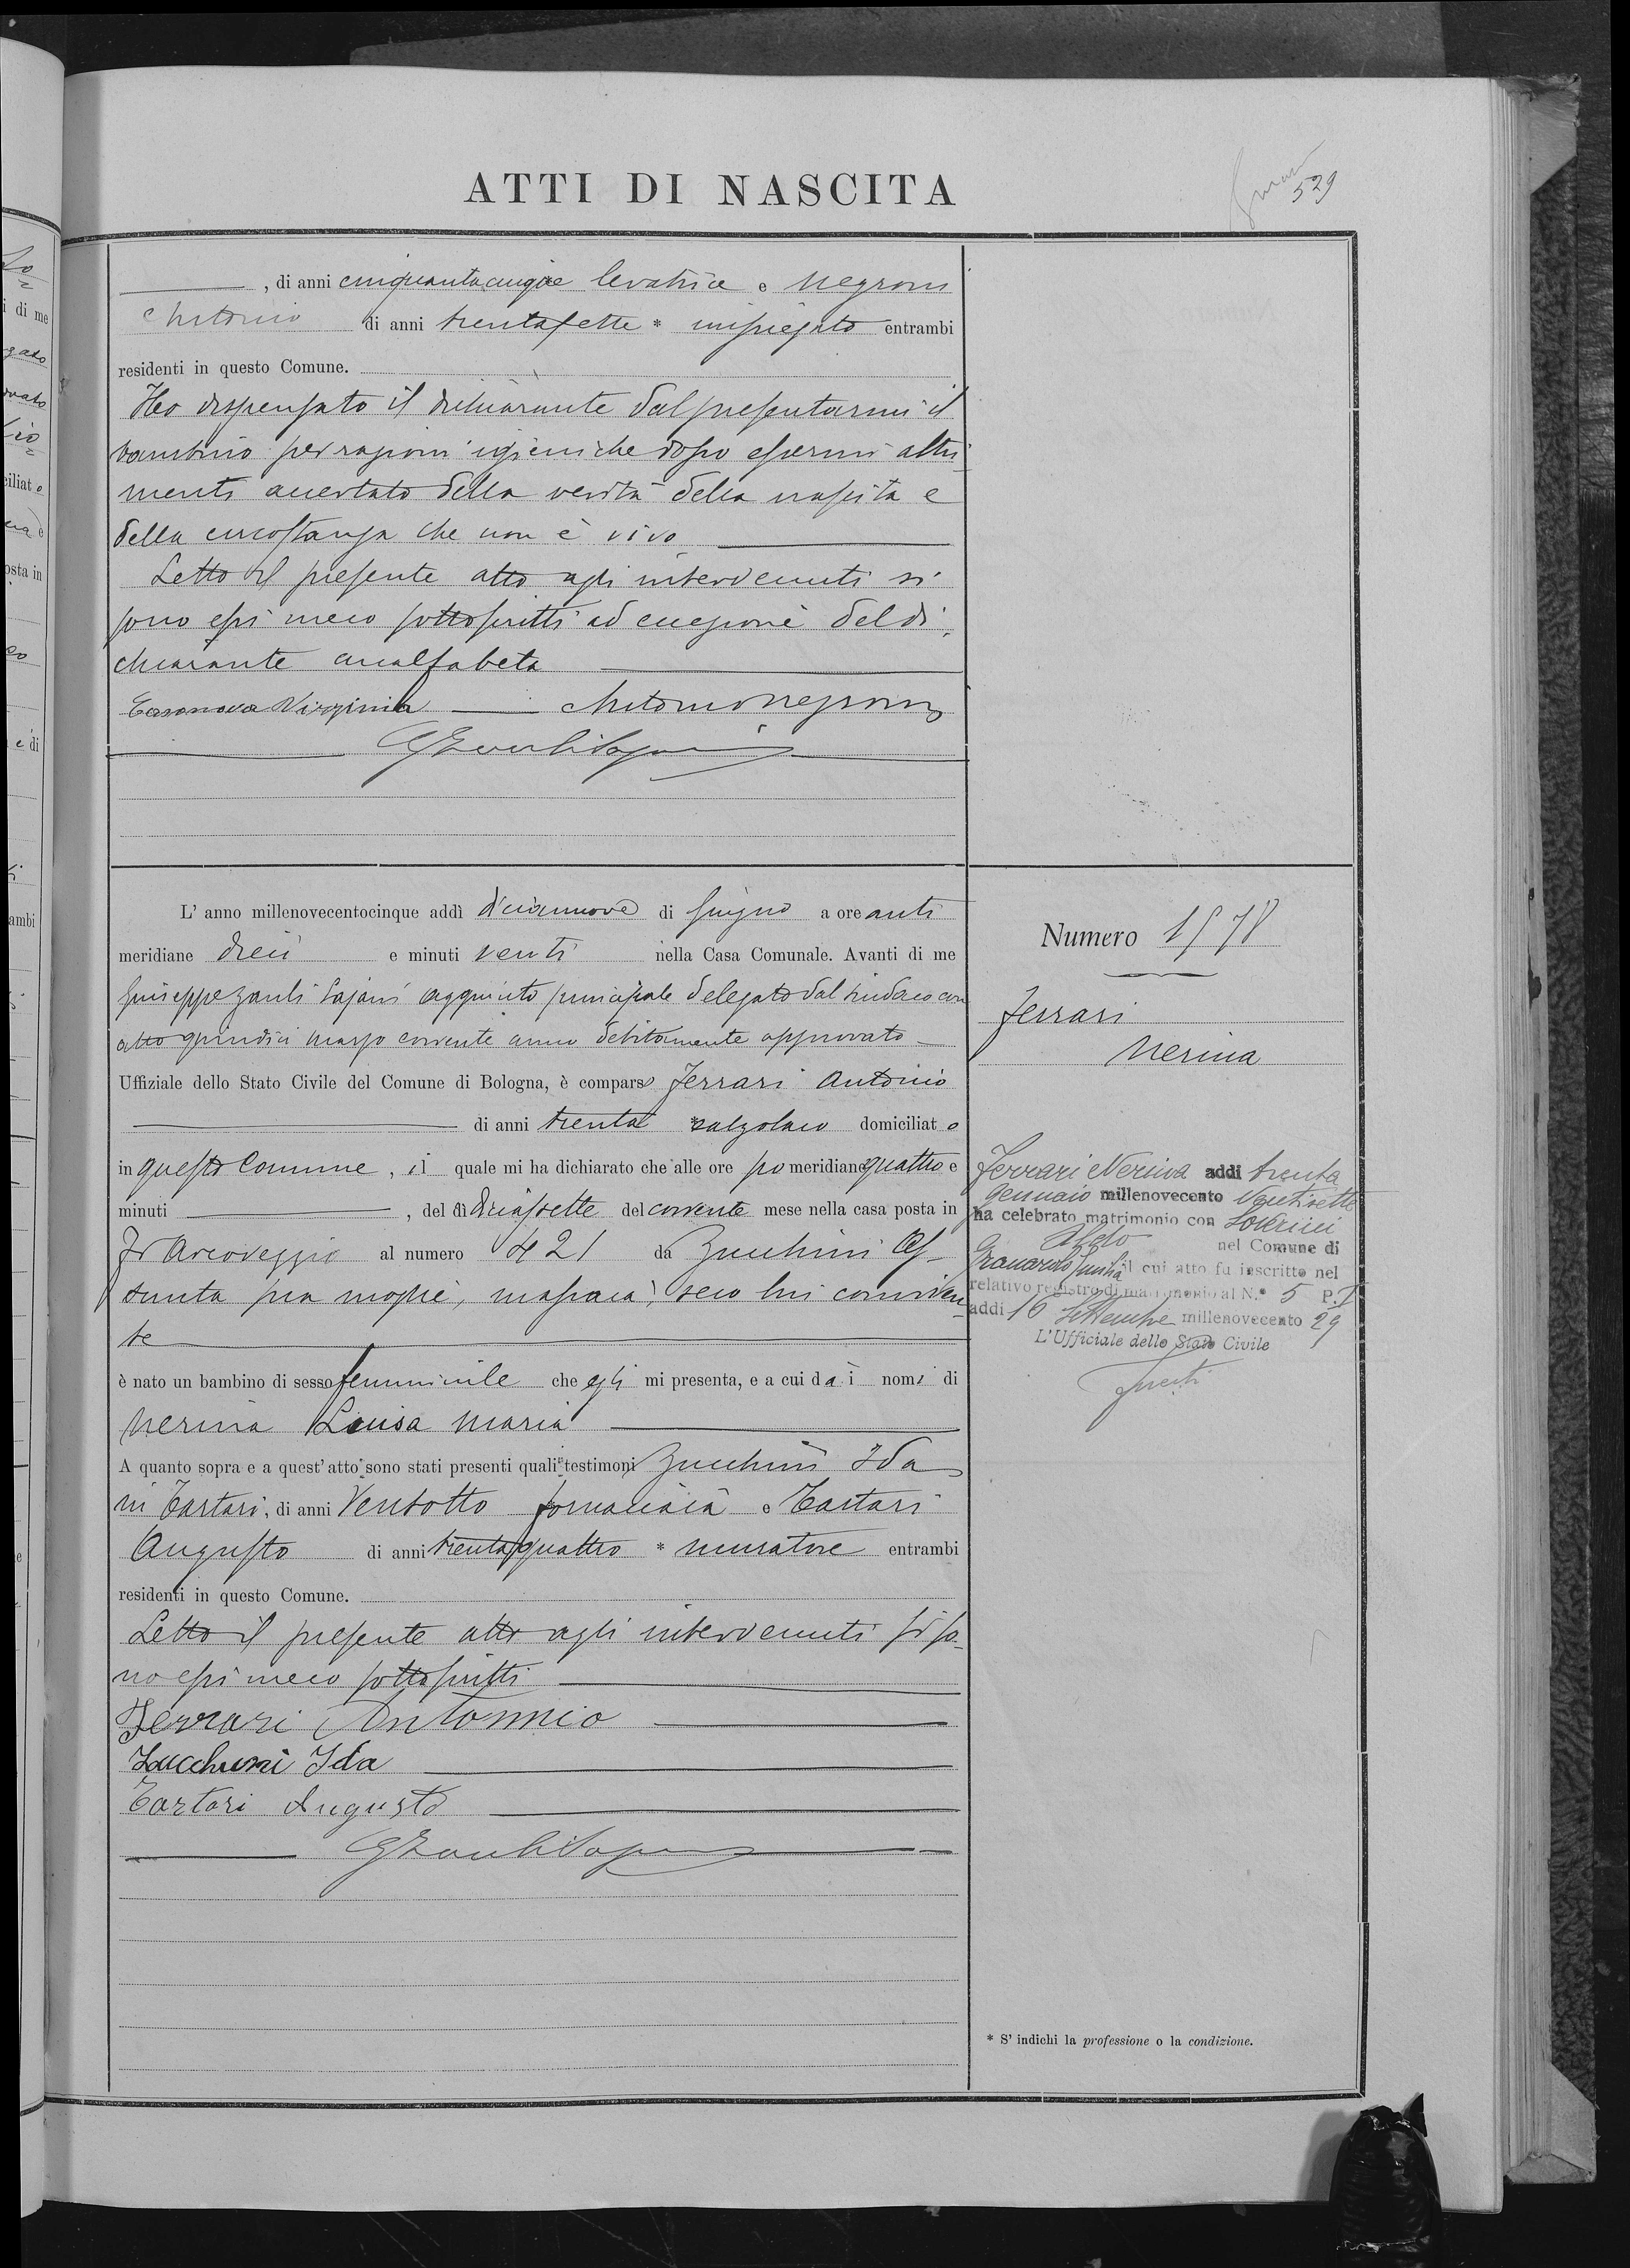 ATTI DI NASCITA
529
, di anni cinquantacinque levatrice e Negroni
Antonio di anni trentasette * impiegato entrambi
residenti in questo Comune.
Ho dispensato il dichiarante dal presentarmi il
bambino per ragioni igieniche dopo essermi altri
menti accertato della verità della nascita e
della circostanza che non è vivo
Letto il presente atto agli intervenuti si
sono essi meco sottoscritti ad eccezione del di
chiarante analfabeta
Casanova Virginia Antonio Negroni
L' anno millenovecentocinque addì diciannove di Giugno a ore anti
meridiane dieci e minuti venti nella Casa Comunale. Avanti di me
Giuseppe Zanli Sajani aggiunto principale delegato dal Sindaco con
atto quindici marzo corrente anno debitamente approvato
Uffiziale dello Stato Civile del Comune di Bologna, è comparso Ferrari Antonio
di anni trenta * calzolaio domiciliato
in questo Comune, il quale mi ha dichiarato che alle ore pomeridiane quattro e
minuti , del dì diciassette del corrente mese nella casa posta in
Fr Arcoveggio al numero 421 da Zucchini As-
sunta sua moglie, massaia, seco lui conviven
te
è nato un bambino di sesso femminile che egli mi presenta, e a cui dà i nomi di
Nerina Luisa Maria
A quanto sopra e a quest' atto sono stati presenti quali testimoni Zucchini Ida
in Tartari, di anni Ventotto fornaciaia e Tartari
Augusto di anni trentaquattro * muratore entrambi
residenti in questo Comune.
Letto il presente atto agli intervenuti si so-
no essi meco sottoscritti
Ferrari Antonnio
Zucchini Ida
Tartari Augusto
Numero 1578
Ferrari
Nerina
Ferrari Nerina addì trenta
Gennaio millenovecento Ventisette
ha celebrato matrimonio con
Aldo nel Comune di
Granarolo Emilia il cui atto fu inscritto nel
relativo registro di matrimonio al N.° 5 P. I
addì 16 Settembre millenovecento 29
L'Ufficiale dello Stato Civile
* S' indichi la professione o la condizione.